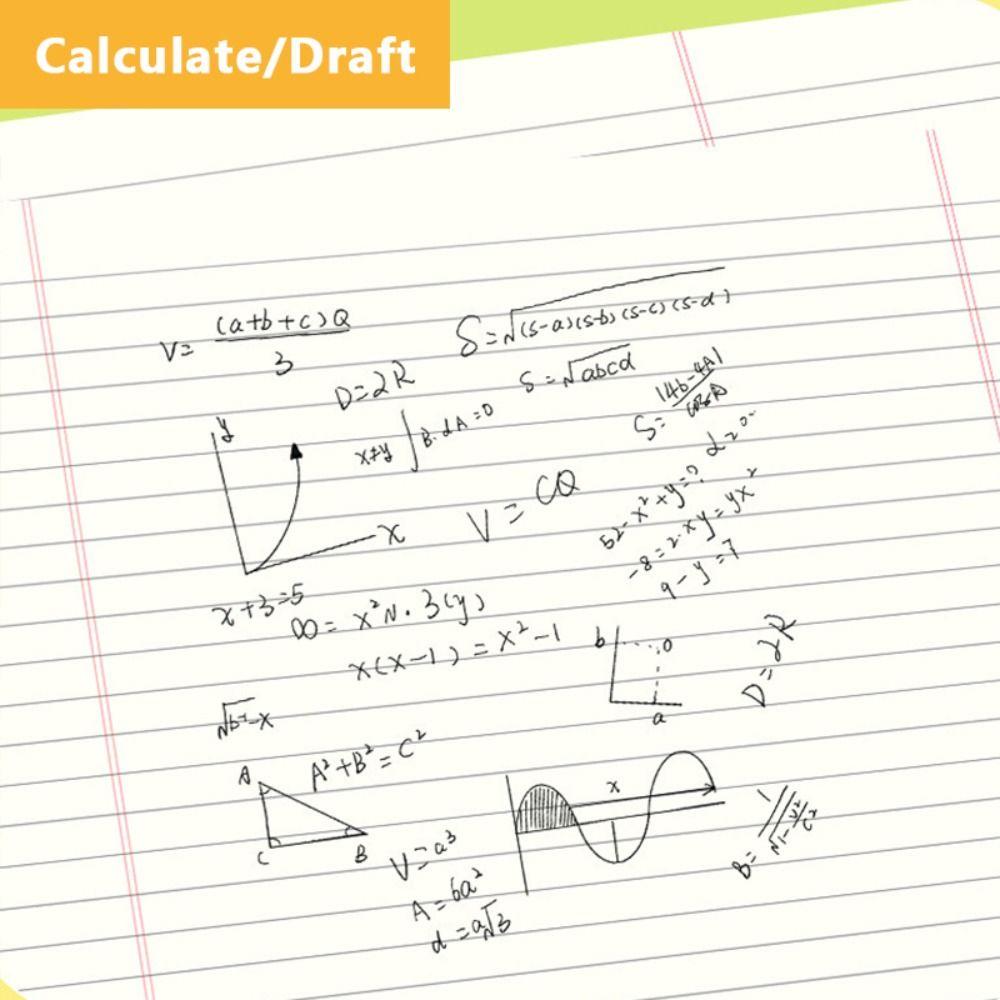 Calculate/Draft
V= (a+b+c)Q / 3
S=√(s-a)(s-b)(s-c)(s-d)
D=2R
S=√abcd
y
x≠y ∫B·dA=0
V=CQ
x
52-x²+y=?
-8=2·xy=yx²
9-y=7
x+3=5
∞=x²N·3(y)
x(x-1)=x²-1
b
o
a
D=2R
A
A²+B²=C²
C
B
x
V=a³
A=6a²
d=a√3
B= 1/√1-v²/c²